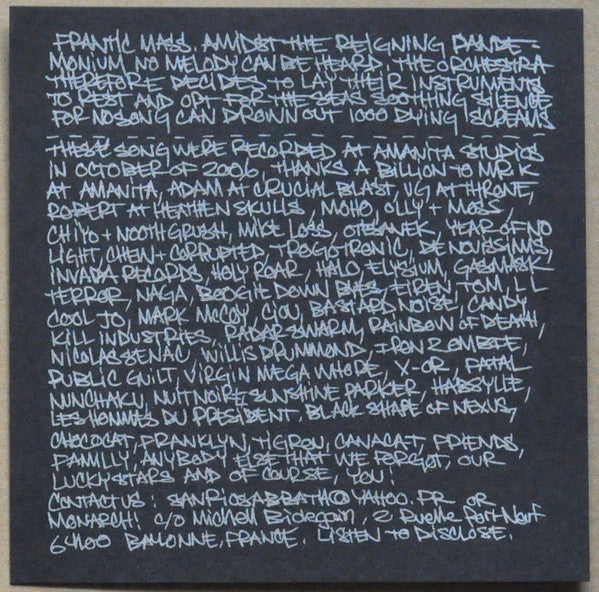 FRANTIC MASS. AMIDST THE REIGNING PANDE-
MONIUM NO MELODY CAN BE HEARD. THE ORCHESTRA
THEREFORE DECIDES TO LAY THEIR INSTRUMENTS
TO REST AND OPT FOR THE SEAS SOOTHING SILENCE
FOR NO SONG CAN DROWN OUT 1000 DYING SCREAMS
THESE SONG WERE RECORDED AT AMANITA STUDIOS
IN OCTOBER OF 2006, THANKS A BILLION TO MR. K
AT AMANITA, ADAM AT CRUCIAL BLAST, VG AT THRONE,
ROBERT AT HEATHEN SKULLS, MOHO, OLLY + MOSS,
CHIYO + NOOTHGRUSH, MIKE LOSS, OTESANEK, YEAR OF NO
LIGHT, CHEW + CORRUPTED, TROGLOTRONIC, DE NOVISSIMIS,
INVADA RECORDS, HOLY ROAR, HALO, ELYSIUM, GASMASK
TERROR, NAGA, BOOGIE DOWN EIREN, TOM, LL
COOL JO, MARK MCCOY, BASTARD NOISE, CANDY
KILL INDUSTRIES, RADAR SWARM, RAINBOW OF DEATH,
NICOLAS SENAC, WILLIS DRUMMOND, IRON ZOMBIE,
PUBLIC GUILT, VIRGIN MEGA WHORE, X-OR, FATAL
NUNCHAKU, NUIT NOIRE, SUNSHINE PARKER,
LES HOMMES DU PRESIDENT, BLACK SHAPE OF NEXUS,
CHOCOCAT, FRANKLYN, TIGROU, CANACAT, FRIENDS,
FAMILLY, ANYBODY ELSE THAT WE FORGOT, OUR
LUCKY STARS AND OF COURSE, YOU!
CONTACT US: SANRIOSABBATH@YAHOO.FR OR
MONARCH! C/O MICHELL BIDEGAIN, 2 RUELLE PORT-NEUF
64100 BAYONNE, FRANCE. LISTEN TO DISCLOSE.